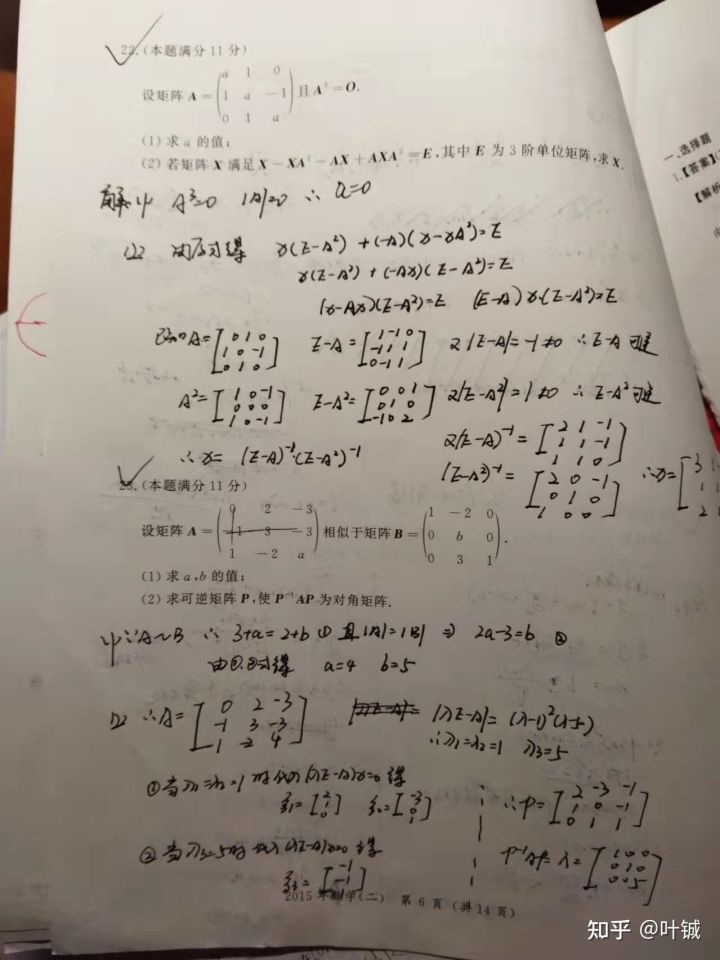 22.(本题满分11分)
设矩阵 A = (a 1 0; 1 a -1; 0 1 a) 且 A³ = O.
(1) 求 a 的值;
(2) 若矩阵 X 满足 X - XA² - AX + AXA² = E, 其中 E 为 3 阶单位矩阵, 求 X.
解(1) A³=0 |A|=0 ∴ a=0
(2) 由原式得 x(E-A²) + (-A)(x-xA²)=E
x(E-A²) + (-Ax)(E-A²)=E
(x-Ax)(E-A²)=E (E-A)x(E-A²)=E
已知A=[0 1 0; 1 0 -1; 0 1 0] E-A=[1 -1 0; -1 1 1; 0 -1 1] 又|E-A|=-1≠0 ∴E-A可逆
A²=[1 0 -1; 0 0 0; 1 0 -1] E-A²=[0 0 1; 0 1 0; -1 0 2] 又|E-A²|=1≠0 ∴E-A²可逆
∴x=(E-A)⁻¹(E-A²)⁻¹
又(E-A)⁻¹=[2 1 -1; 1 1 -1; 1 1 0]
(E-A²)⁻¹=[2 0 -1; 0 1 0; 1 0 0] ∴x=[3 1; 1 1; 2
23.(本题满分11分)
设矩阵 A = (0 2 -3; -1 3 -3; 1 -2 a) 相似于矩阵 B = (1 -2 0; 0 b 0; 0 3 1).
(1) 求 a,b 的值;
(2) 求可逆矩阵 P, 使 P⁻¹AP 为对角矩阵.
(1) ∵A~B ∴ 3+a=2+b ① 且|A|=|B| ⇒ 2a-3=b ②
由①.②式得 a=4 b=5
(2) ∴A=[0 2 -3; -1 3 -3; 1 -2 4] |λE-A|=(λ-1)²(λ-5)
∴λ1=λ2=1 λ3=5
①当λ1=λ2=1时代入(λE-A)x=0得
ξ1=[2 1 0] ξ2=[-3 0 1]
∴P=[2 -3 -1; 1 0 -1; 0 1 1]
②当λ3=5时代入(λE-A)x=0得
ξ3=[-1 -1 1]
P⁻¹AP=λ=[1 0 0; 0 1 0; 0 0 5]
2015年数学(二) 第6页(共14页)
一、选择题
1.【答案】
【解析
知乎 @叶铖